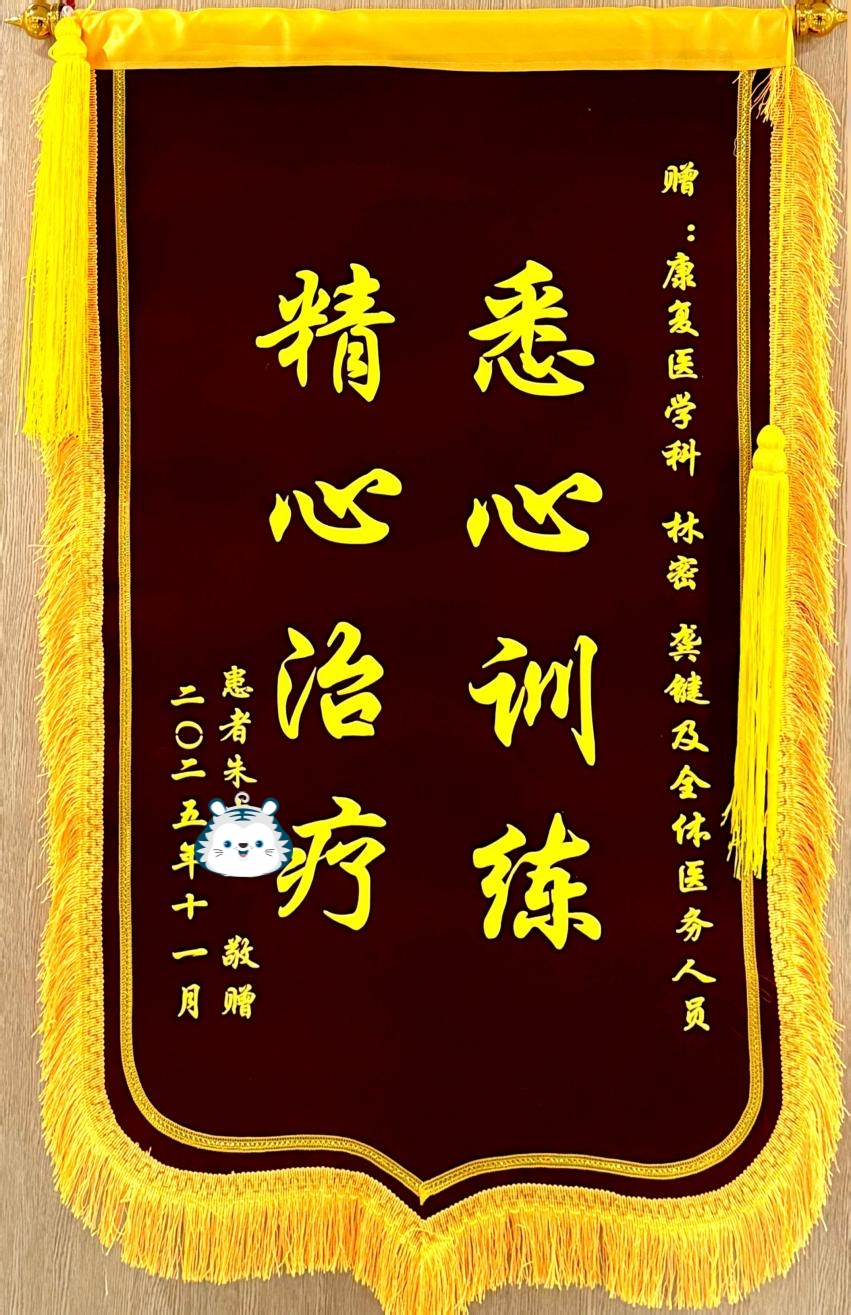 赠：康复医学科 林密 龚键及全体医务人员
悉心训练
精心治疗
患者朱 敬赠
二〇二五年十一月